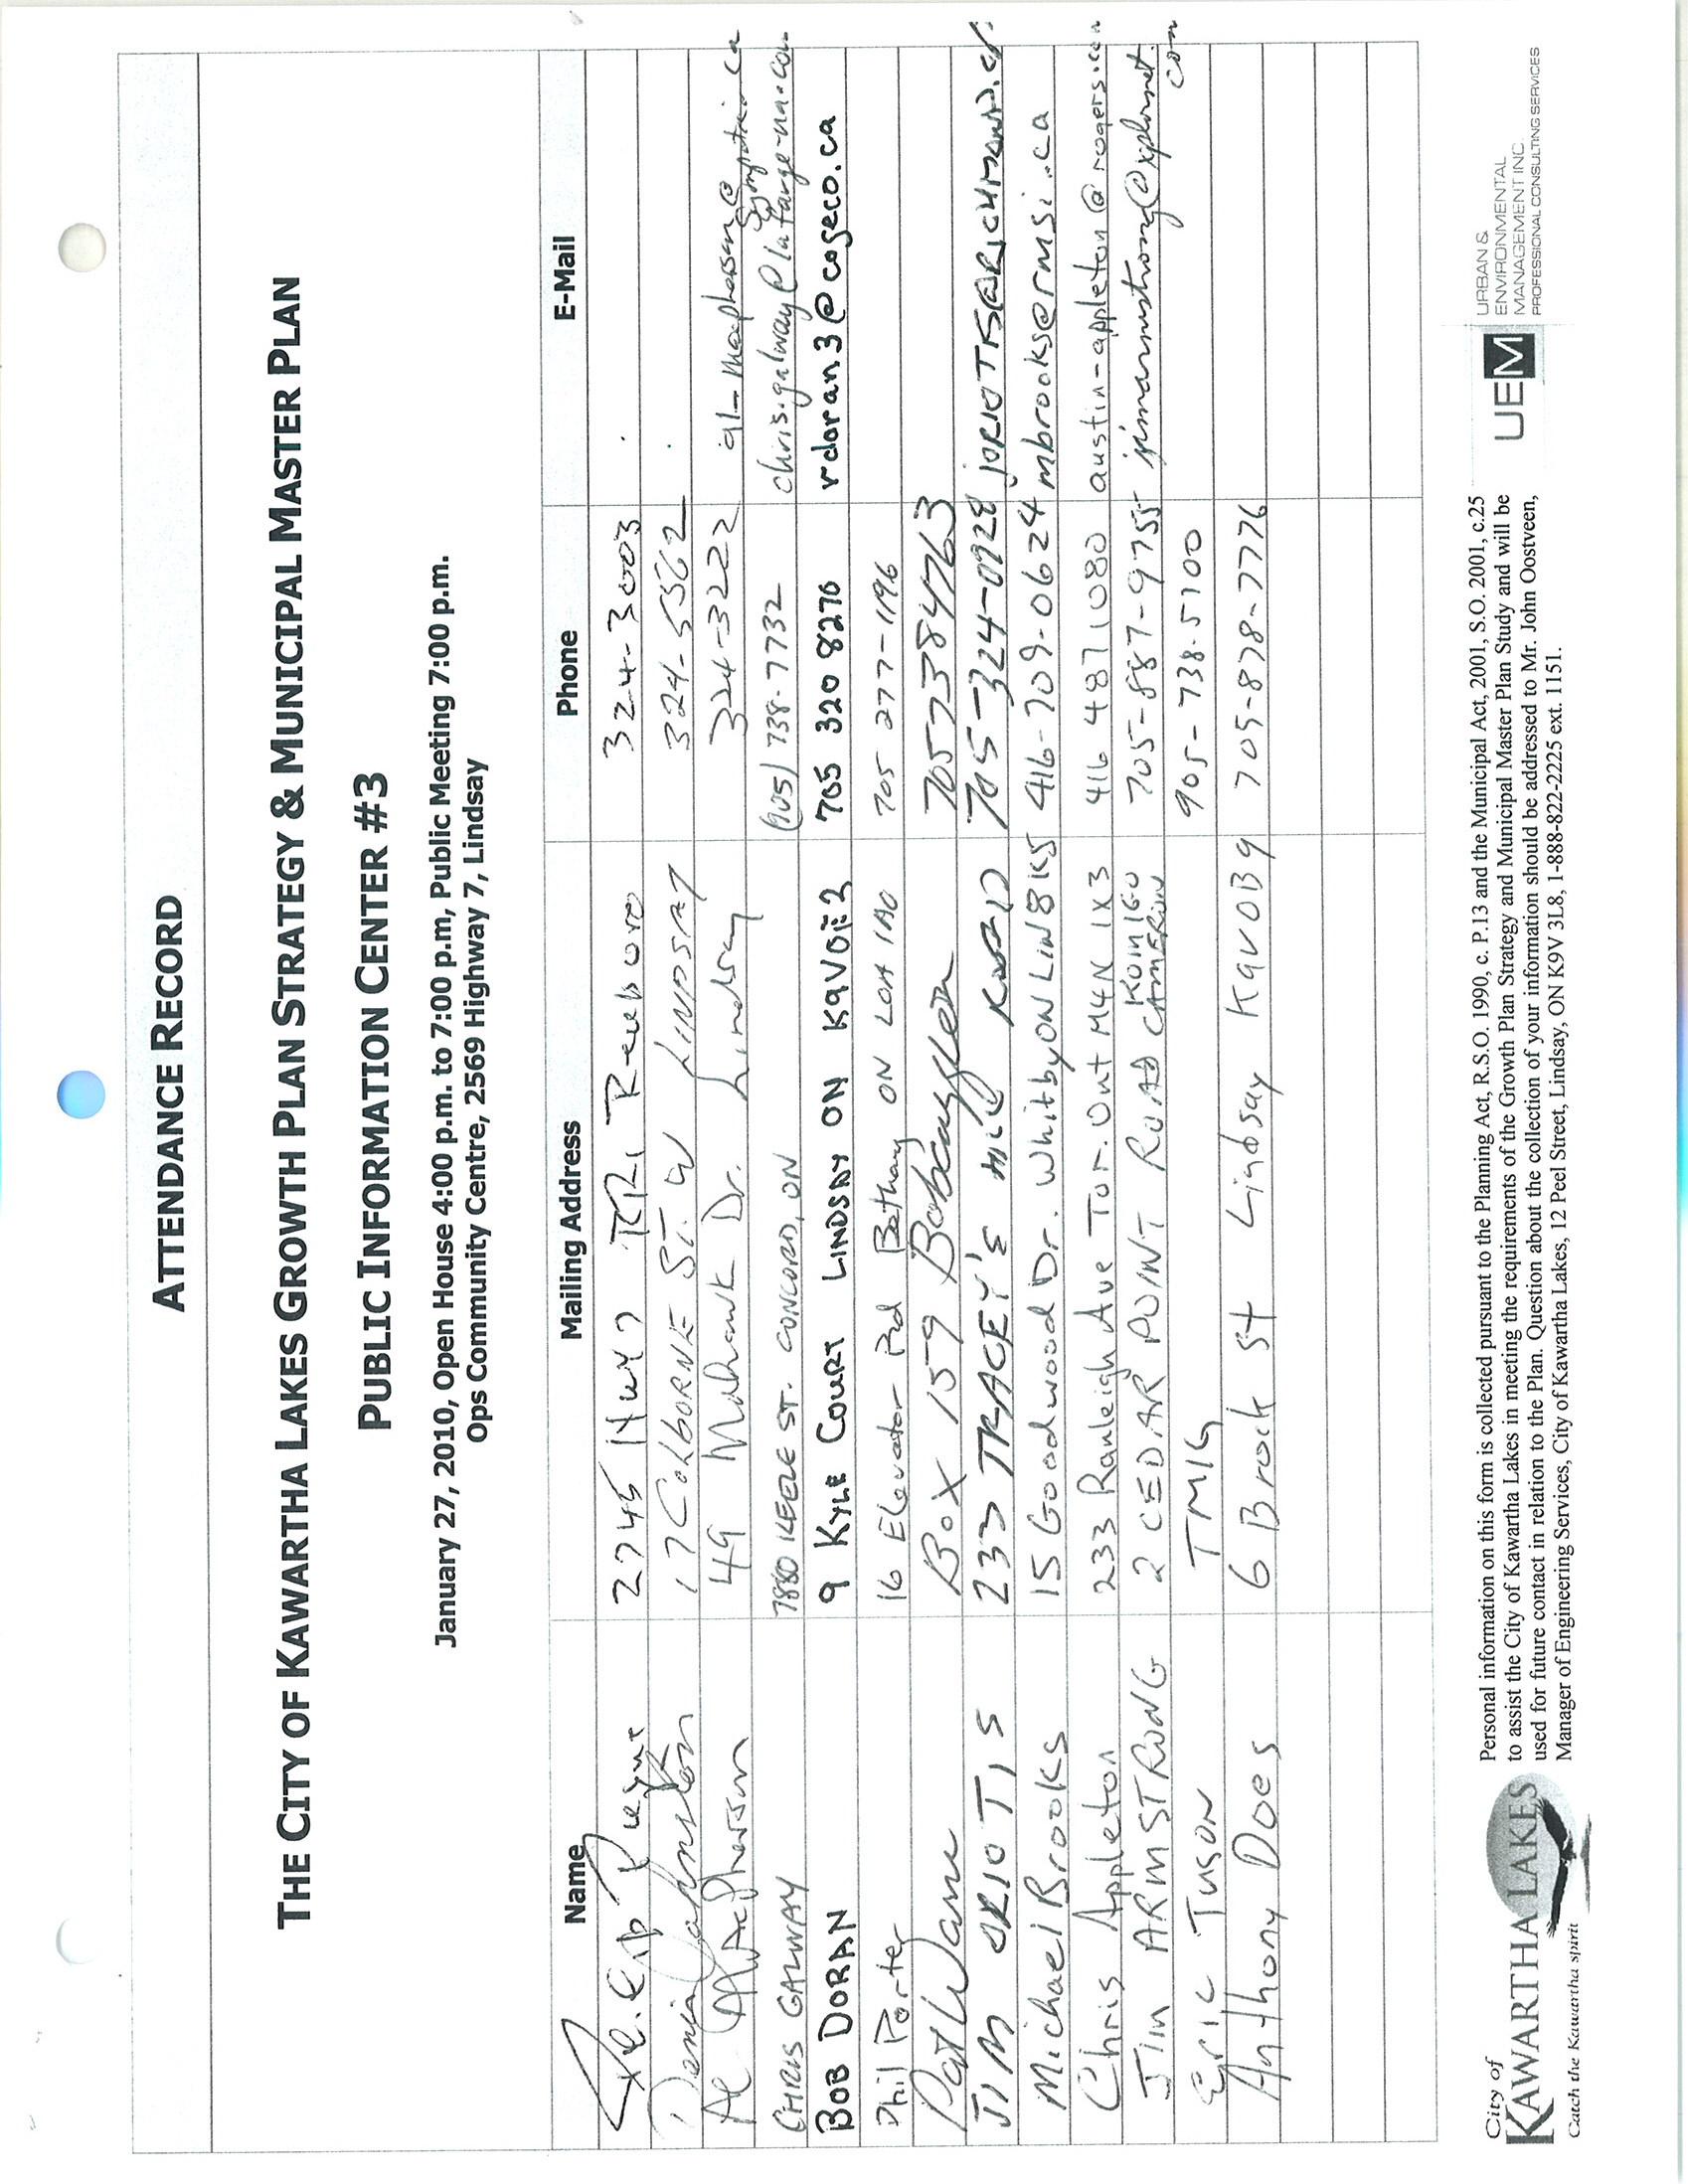 ATTENDANCE RECORD
THE CITY OF KAWARTHA LAKES GROWTH PLAN STRATEGY & MUNICIPAL MASTER PLAN
PUBLIC INFORMATION CENTER #3
January 27, 2010, Open House 4:00 p.m. to 7:00 p.m, Public Meeting 7:00 p.m.
Ops Community Centre, 2569 Highway 7, Lindsay
Name Mailing Address Phone E-Mail
2745 Hwy 7 RR1 324-3003
17 COLBORNE ST. W LINDSAY 324-5562
Al MacPherson 49 Mohawk Dr. Lindsay 324-3222 al-macpherson@sympatico.ca
CHRIS GALWAY 7880 KEELE ST. CONCORD, ON (905) 738-7732 chris.galway@lafarge-na.com
BOB DORAN 9 KYLE COURT LINDSAY ON K9V 705 320 8270 rdoran3@cogeco.ca
Phil Porter 16 Elevator Rd Bethany ON L0A 1A0 705 277-1196
Pat Warn Box 159 Bobcaygeon 705 738 4763
JIM ORIOTIS 233 TRACEY'S HILL ROAD 705-324-0928
Michael Brooks 15 Goodwood Dr. Whitby ON L1N 8K5 416-709-0624 mbrooks@ermsi.ca
Chris Appleton 233 Ranleigh Ave Tor. Ont M4N 1X3 416 487 1080 austin-appleton@rogers.com
JIM ARMSTRONG 2 CEDAR POINT ROAD CAMERON K0M 1G0 705-887-9755 jimarmstrong@xplornet.com
Eric TUSON TMIG 905-738-5700
Anthony Does 6 Brock St Lindsay K9V 0B9 705-878-7776
City of
KAWARTHA LAKES
Catch the Kawartha spirit
Personal information on this form is collected pursuant to the Planning Act, R.S.O. 1990, c. P.13 and the Municipal Act, 2001, S.O. 2001, c.25
to assist the City of Kawartha Lakes in meeting the requirements of the Growth Plan Strategy and Municipal Master Plan Study and will be
used for future contact in relation to the Plan. Question about the collection of your information should be addressed to Mr. John Oostveen,
Manager of Engineering Services, City of Kawartha Lakes, 12 Peel Street, Lindsay, ON K9V 3L8, 1-888-822-2225 ext. 1151.
UEM
URBAN &
ENVIRONMENTAL
MANAGEMENT INC.
PROFESSIONAL CONSULTING SERVICES